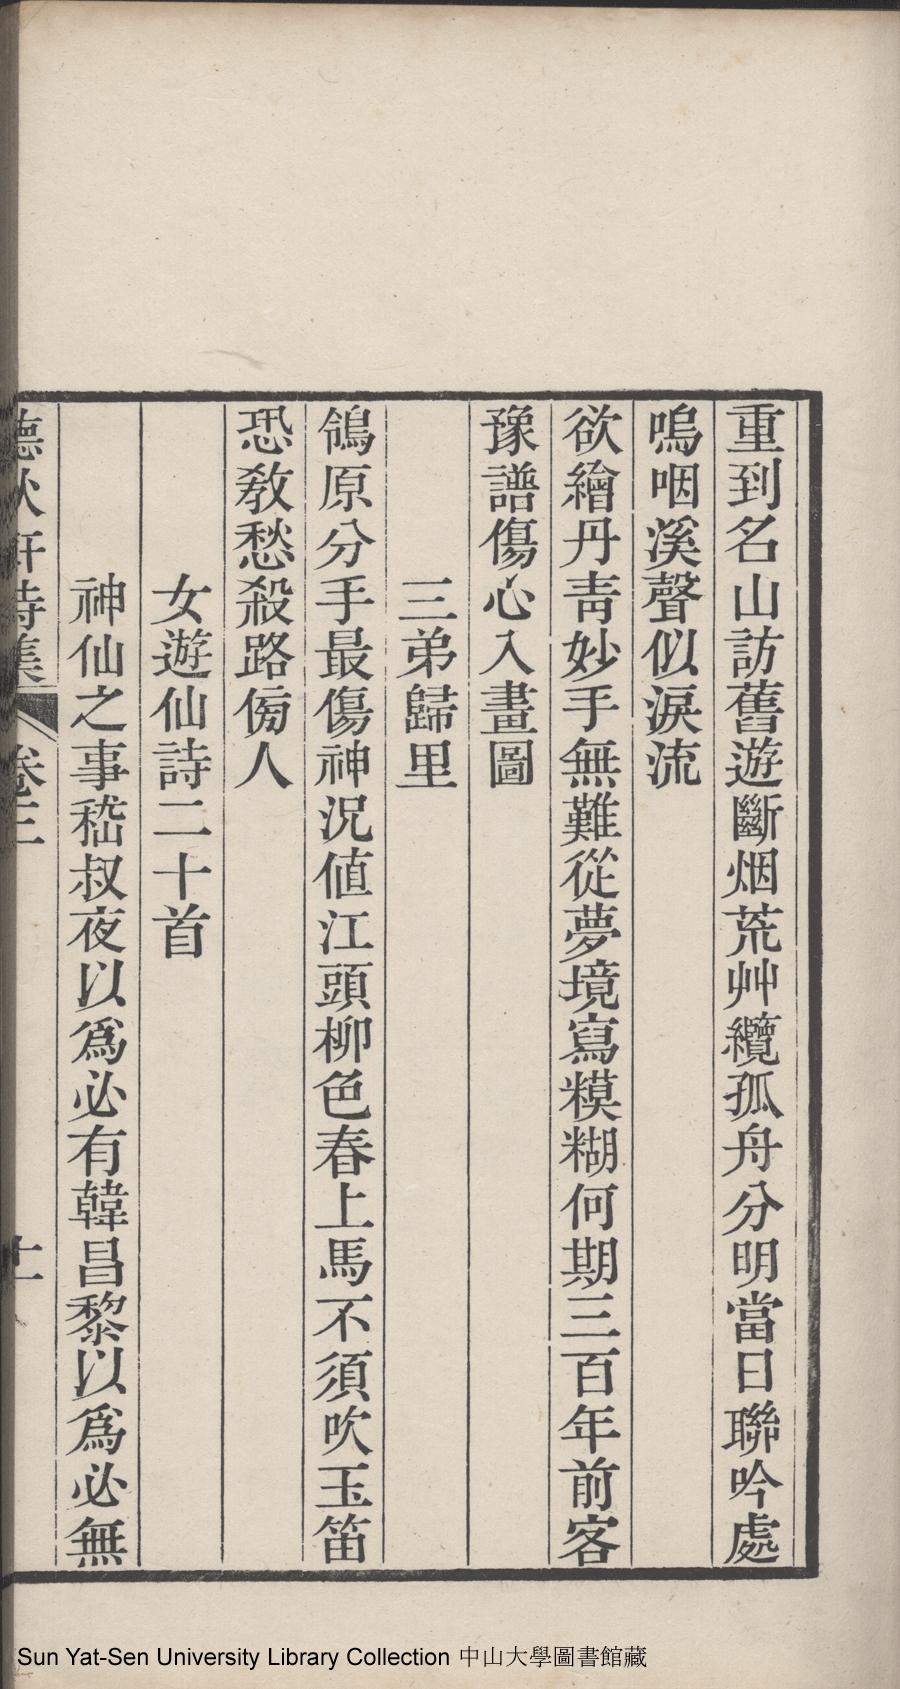 重到名山訪舊遊斷烟荒艸纜孤舟分明當日聯吟處
嗚咽溪聲似淚流
欲繪丹靑妙手無難從夢境寫糢糊何期三百年前客
豫譜傷心入畫圖
三弟歸里
鴒原分手最傷神況値江頭柳色春上馬不須吹玉笛
恐敎愁殺路傍人
女遊仙詩二十首
神仙之事嵇叔夜以爲必有韓昌黎以爲必無
德秋軒詩集 卷三
Sun Yat-Sen University Library Collection 中山大學圖書館藏